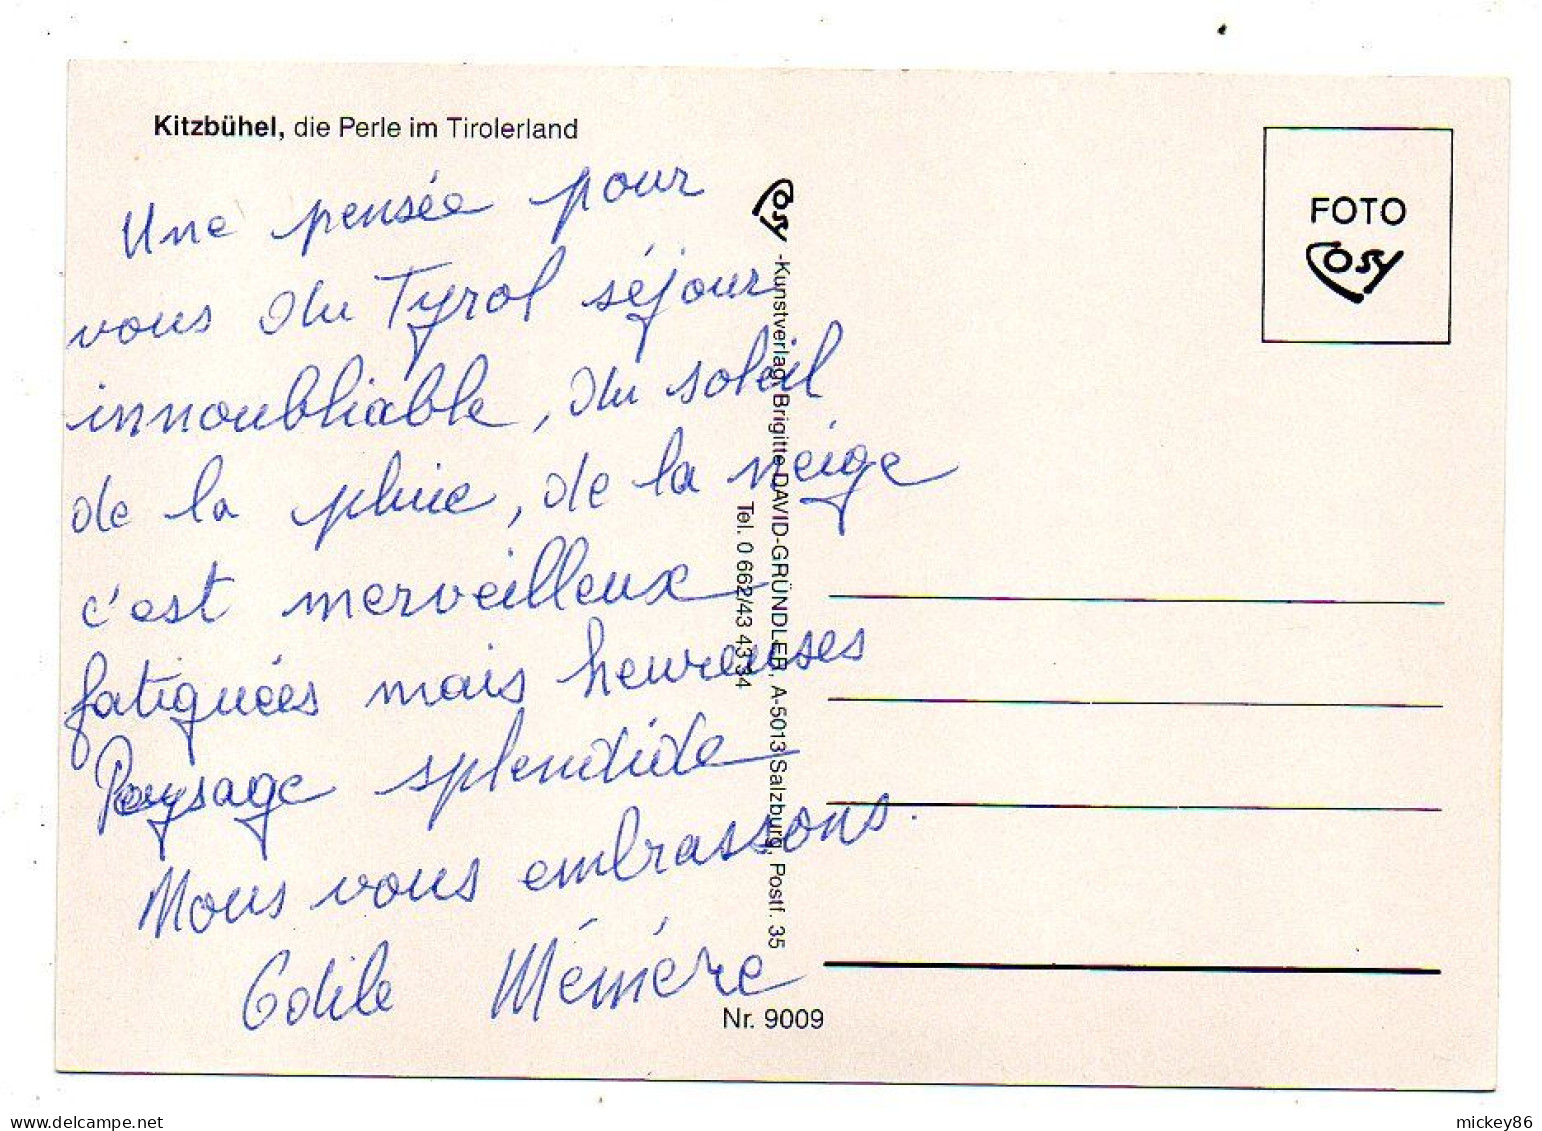 Kitzbühel, die Perle im Tirolerland
Une pensée pour
vous du Tyrol séjour
innoubliable, du soleil
de la pluie, de la neige
c'est merveilleux
fatiguées mais heureuses
Paysage splendide
Nous vous embrassons.
Odile Mémère
Cosy -Kunstverlag, Brigitte DAVID-GRÜNDLER, A-5013 Salzburg, Postf. 35
Tel. 0 662/43 43 34
Nr. 9009
FOTO
Cosy
delcampe.net
mickey86